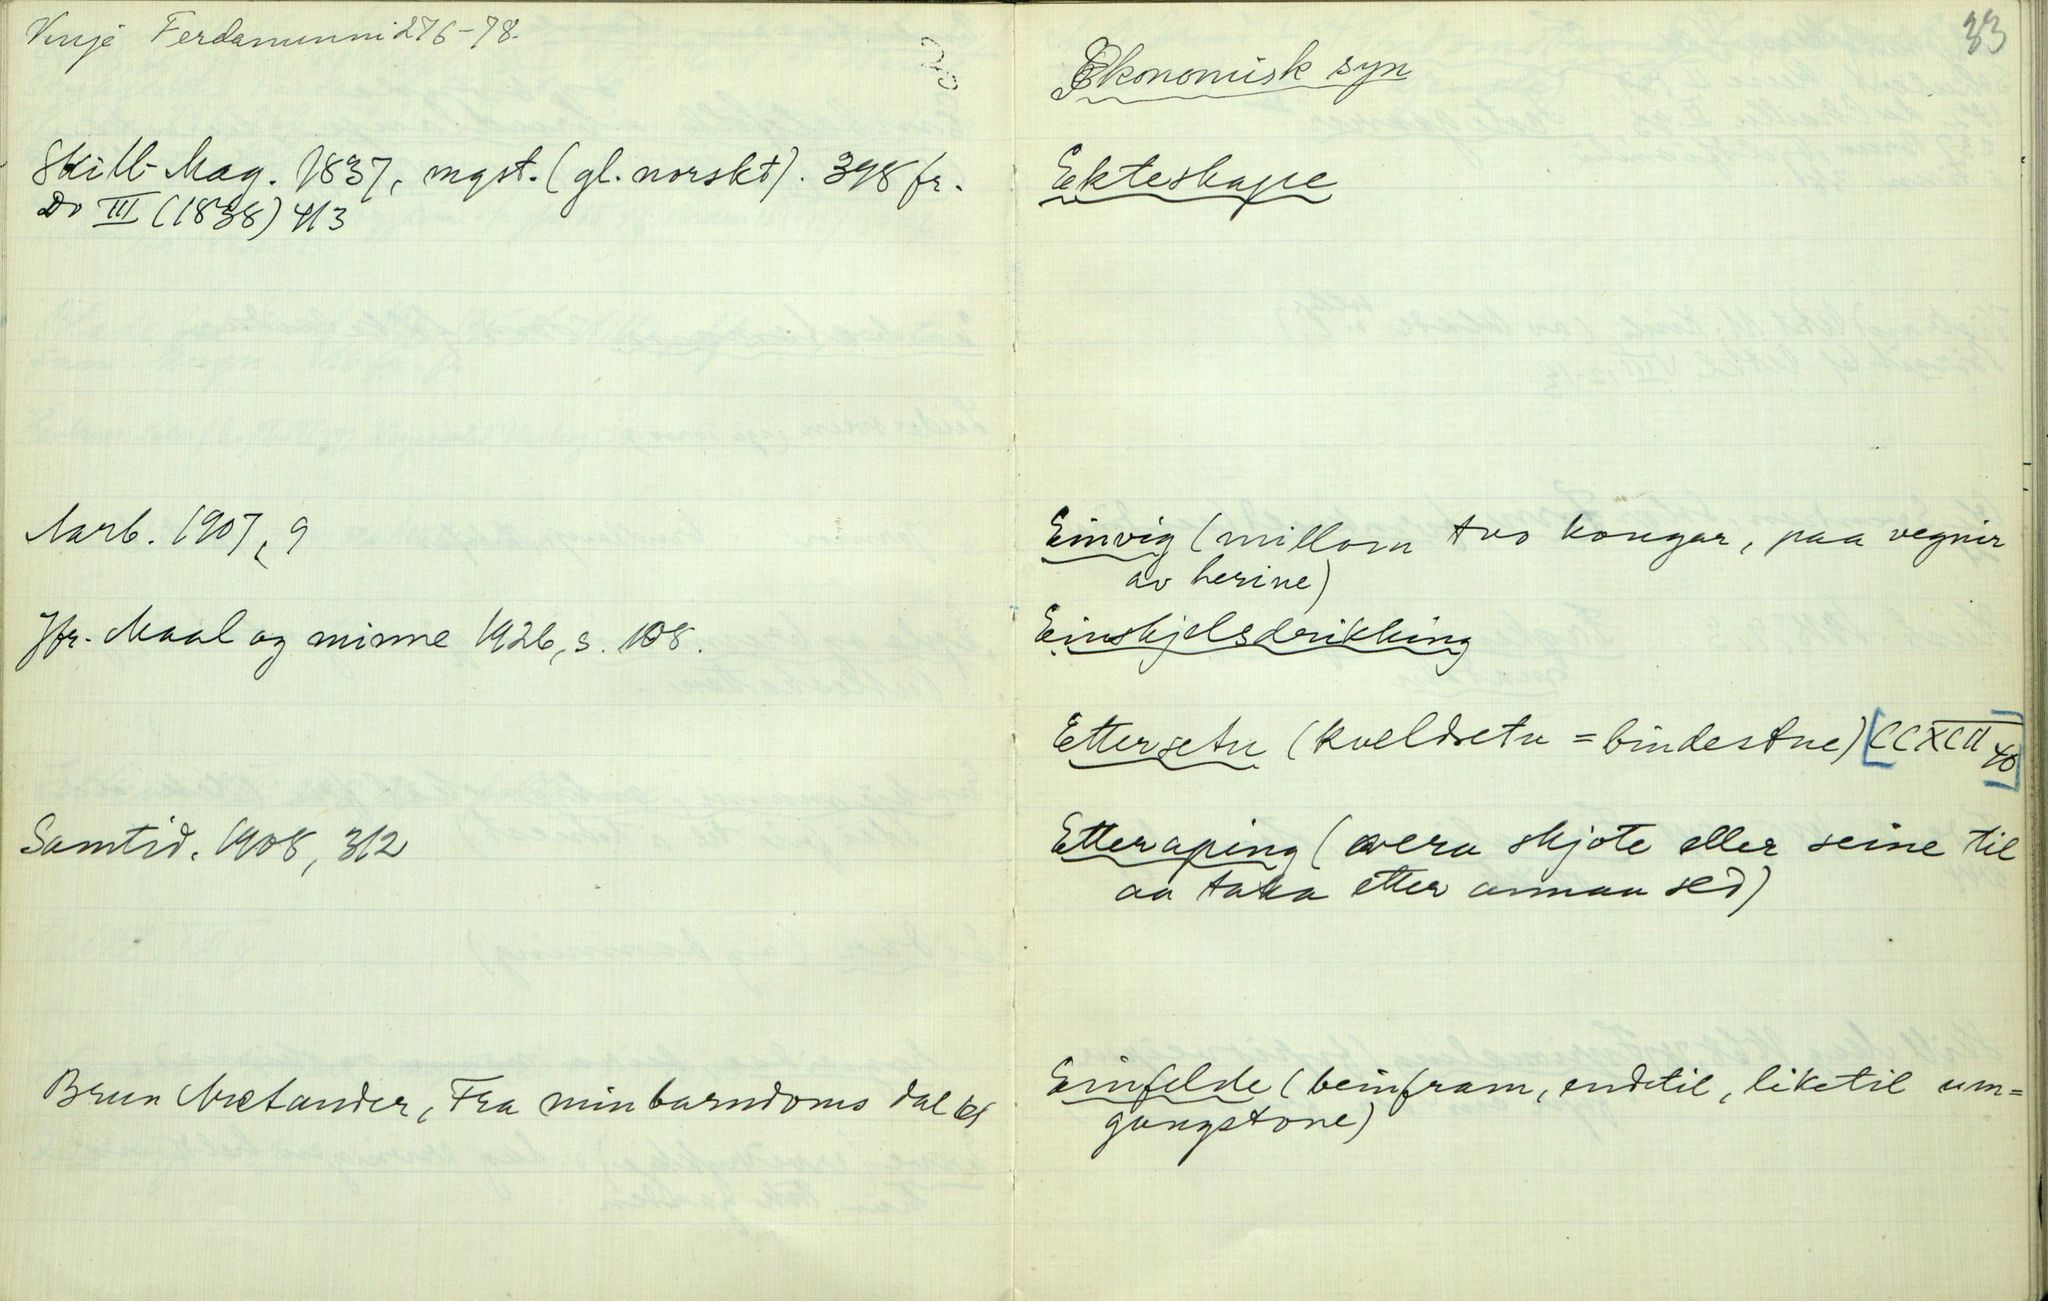 Vinje Ferdaminni 276-78.
Skill-Mag. 1837, mgst. (gl. norskt). 398 fr.
Do III (1838) 413
Aarb. 1907, 9
Jfr. Maal og minne 1926, s. 108.
Samtid. 1908, 312
Brun Aretander, Fra min barndoms dal 61
33
Økonomisk syn
Ekteskape
Einvig (millom tvo kongar, paa vegnir
av herine)
Einskjelsdrikking
Ettersetu (kveldsetu = bindestue) [CCXCII 40]
Etteraping (vera skjote eller seine til
aa taka etter annan sed)
Einfelde (beinfram, endetil, liketil um=
gangstone)